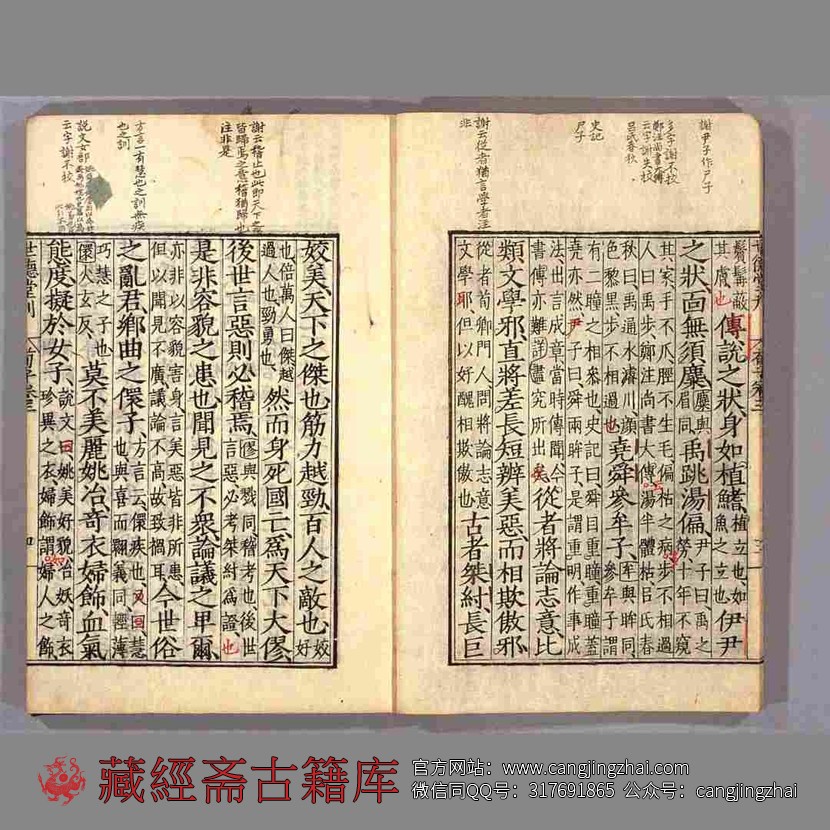 謝尹子作尸子
多字謝不校
鄭注尚書大傳
云字謝失校
呂氏春秋
史記
尸子
謝云從者猶言學者注
非
鬢髯蔽
其膚也
傳說之狀身如植鰭
植立也如
魚之立也
伊尹
之狀面無須麋
麋與
眉同
禹跳湯偏
尹子曰禹之
勞十年不窺
其家手不爪脛不生毛偏枯之病步不相過
人曰禹步鄭注尚書大傳湯半體枯呂氏春
秋曰禹通水濬川顏
色黎黑步不相過也
堯舜參牟子
牟與眸同
參牟子謂
有二瞳之相參也史記曰舜目重瞳重瞳蓋
堯亦然尹子曰舜兩眸子是謂重明作事成
法出言成章當時傳聞今
書傳亦難詳盡究所出矣
從者將論志意比
類文學邪直將差長短辨美惡而相欺傲邪
從者荀卿門人問將論志意
文學耶但以好醜相欺傲也
古者桀紂長巨
姣美天下之傑也筋力越勁百人之敵也
姣
好
也倍萬人曰傑越
過人也勁勇也
然而身死國亡爲天下大僇
後世言惡則必稽焉
僇與戮同稽考也後世
言惡必考桀紂爲證也
是非容貌之患也聞見之不衆論議之卑爾
亦非以容貌害身言美惡皆非所患
但以聞見不廣議論不高故致禍耳
今世俗
之亂君鄉曲之儇子
方言云儇疾也又曰慧
也與喜而翾義同輕薄
巧慧之子也
儇火玄反
莫不美麗姚冶奇衣婦飾血氣
態度擬於女子
說文曰姚美好貌冶妖奇衣
珍異之衣婦飾謂如婦人之飾
世德堂刊
荀子卷三
謝云稽止也此即天下之
皆歸焉之意稽猶歸也
注非是
方言一有慧也之訓無疾
也之訓
說文女部
云字謝不校
藏經斋古籍库
官方网站：www.cangjingzhai.com
微信同QQ号：317691865 公众号：cangjingzhai